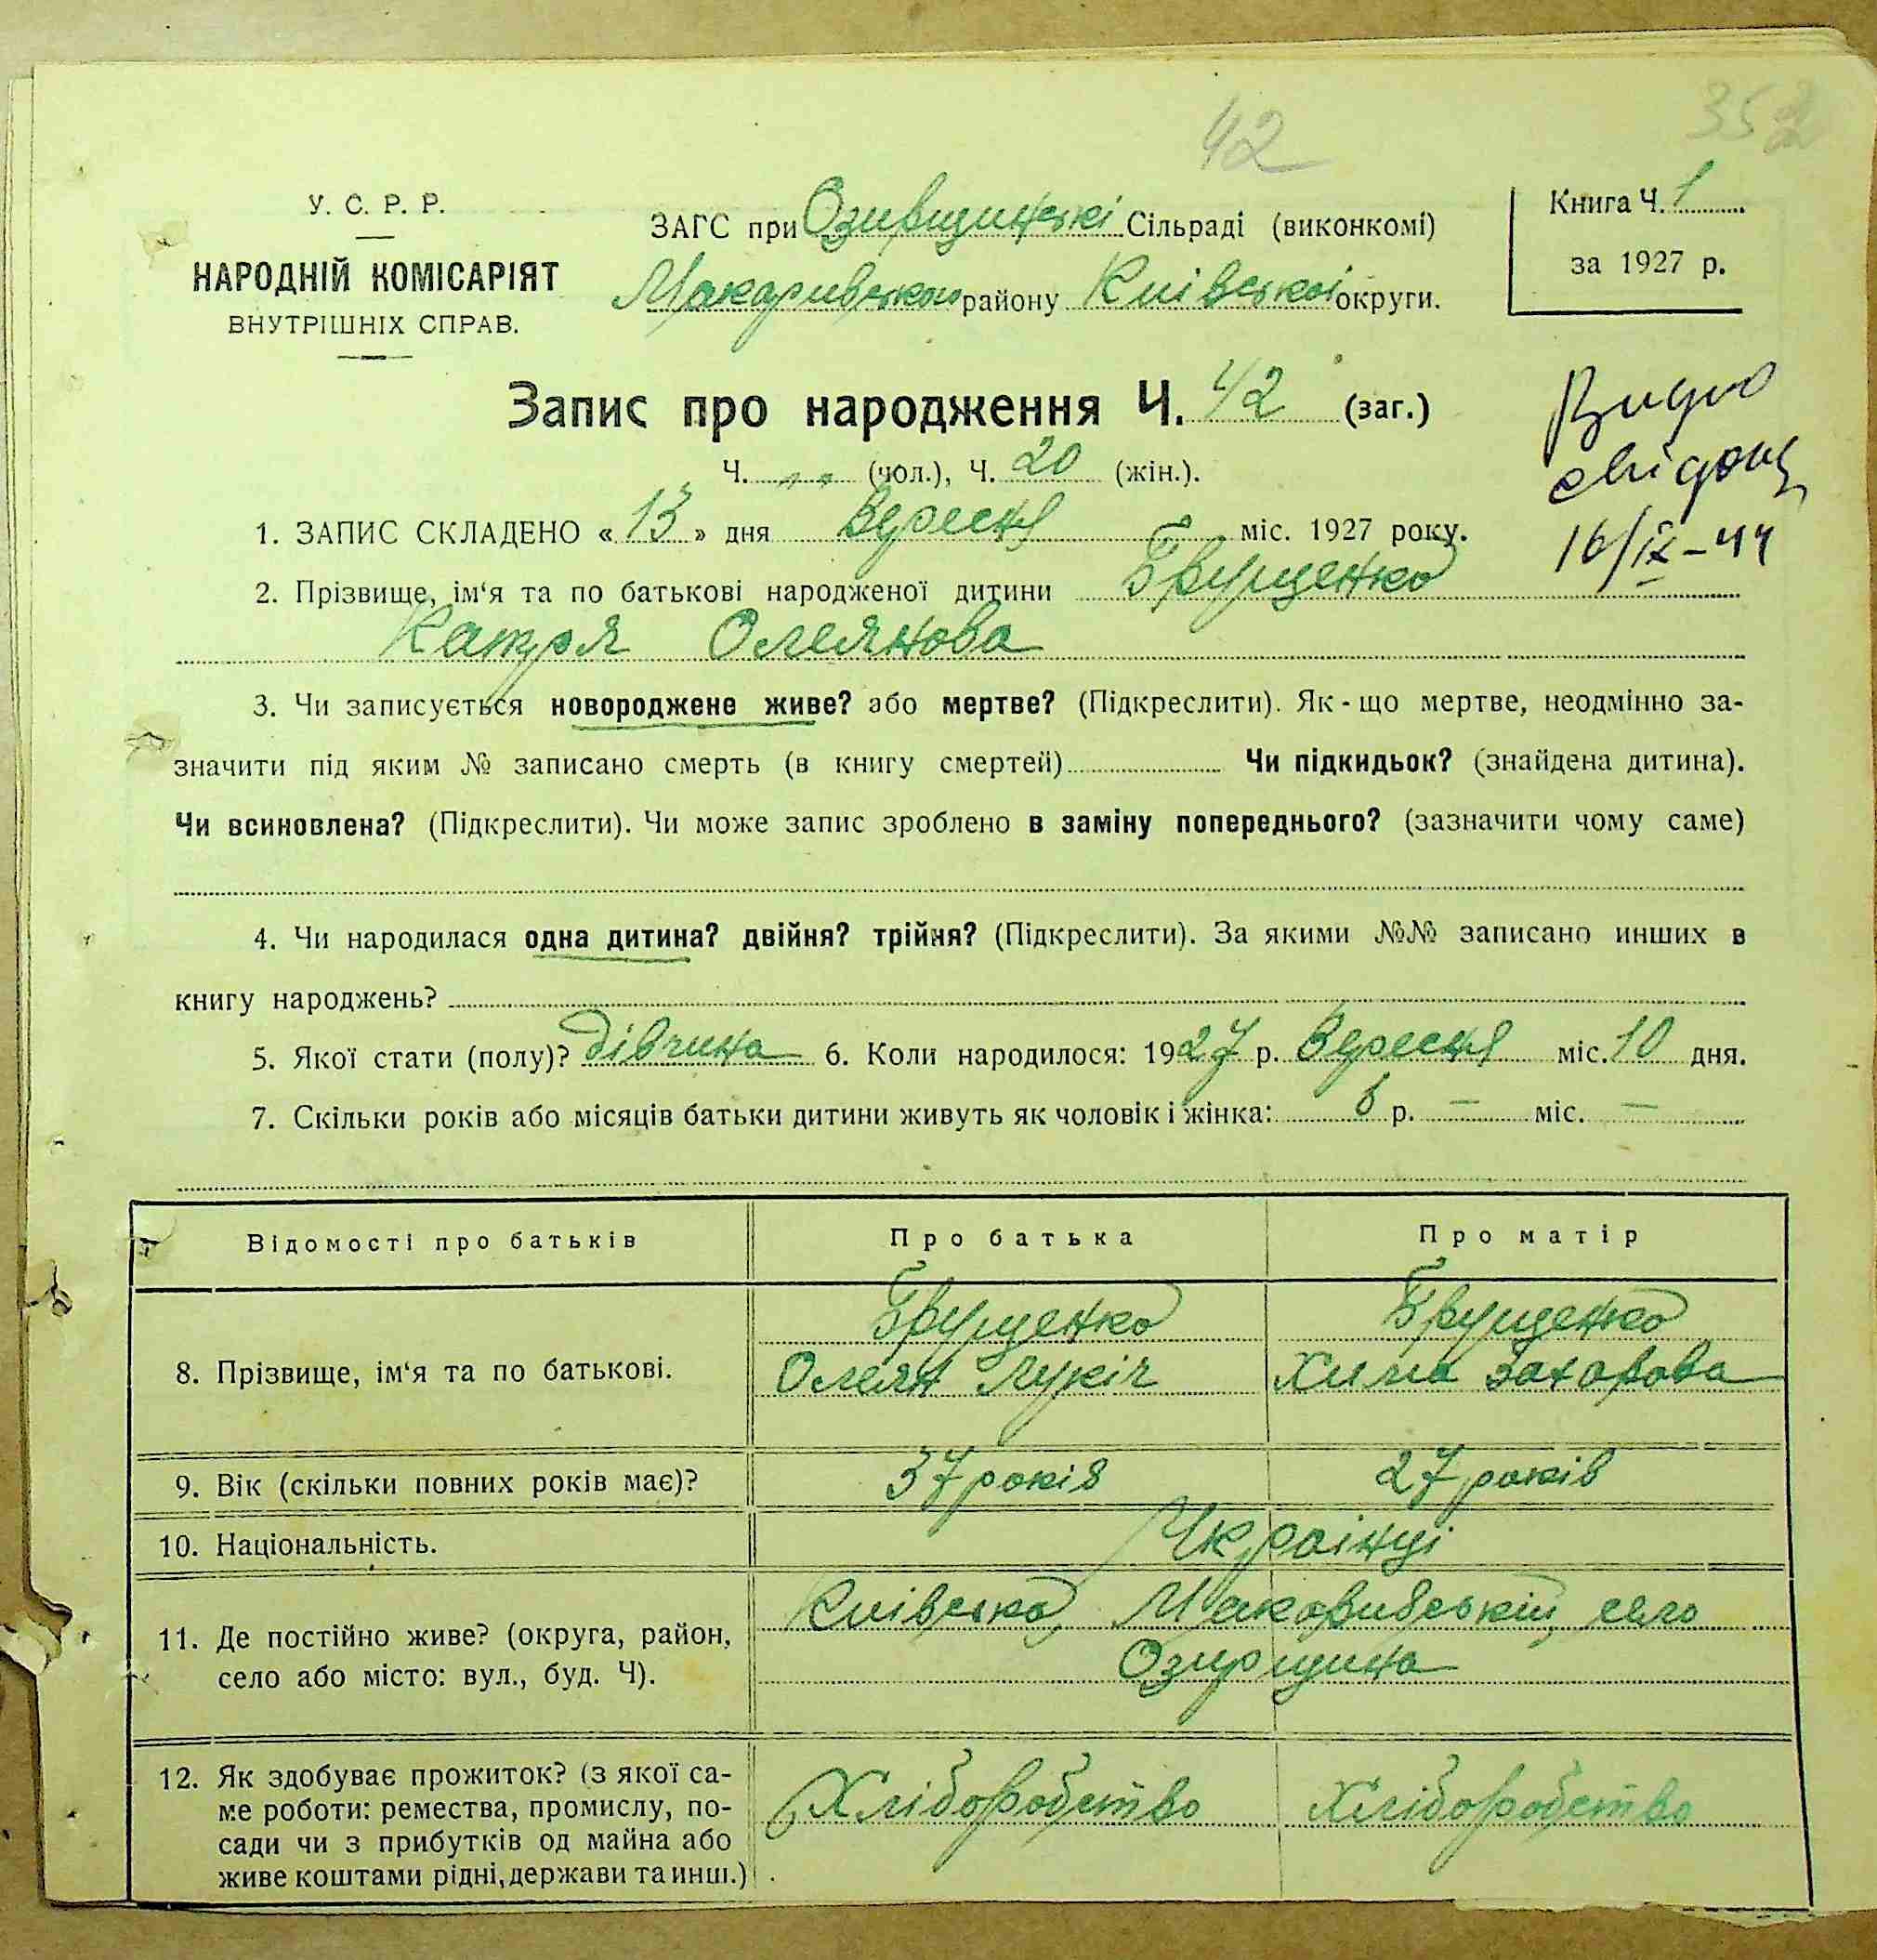 42
352
У. С. Р. Р.
НАРОДНІЙ КОМІСАРІЯТ
ВНУТРІШНІХ СПРАВ.
ЗАГС при Озирщинські Сільраді (виконкомі)
Макарівського району Київської округи.
Книга Ч. 1
за 1927 р.
Запис про народження Ч. 42 (заг.)
Ч. „ „ (чол.), Ч. 20 (жін.).
Видно
свідоц
16/IX-44
1. ЗАПИС СКЛАДЕНО «13» дня Вересня міс. 1927 року.
2. Прізвище, ім‘я та по батькові народженої дитини Грущенко
Катря Олеянова
3. Чи записується новороджене живе? або мертве? (Підкреслити). Як-що мертве, неодмінно за-
значити під яким № записано смерть (в книгу смертей) Чи підкидьок? (знайдена дитина).
Чи всиновлена? (Підкреслити). Чи може запис зроблено в заміну попереднього? (зазначити чому саме)
4. Чи народилася одна дитина? двійня? трійня? (Підкреслити). За якими №№ записано инших в
книгу народжень?
5. Якої стати (полу)? дівчина 6. Коли народилося: 1927 р. Вересня міс. 10 дня.
7. Скільки років або місяців батьки дитини живуть як чоловік і жінка: 6 р. — міс. —
Відомості про батьків Про батька Про матір
8. Прізвище, ім‘я та по батькові.
Грущенко Грущенко
Олеян Лукіч Химa Захарова
9. Вік (скільки повних років має)? 37 років 27 років
10. Національність. Українці
11. Де постійно живе? (округа, район,
село або місто: вул., буд. Ч).
Київська, Макаривський, село
Озирщина
12. Як здобуває прожиток? (з якої са-
ме роботи: ремества, промислу, по-
сади чи з прибутків од майна або
живе коштами рідні, держави та инш.)
Хліборобство Хліборобство